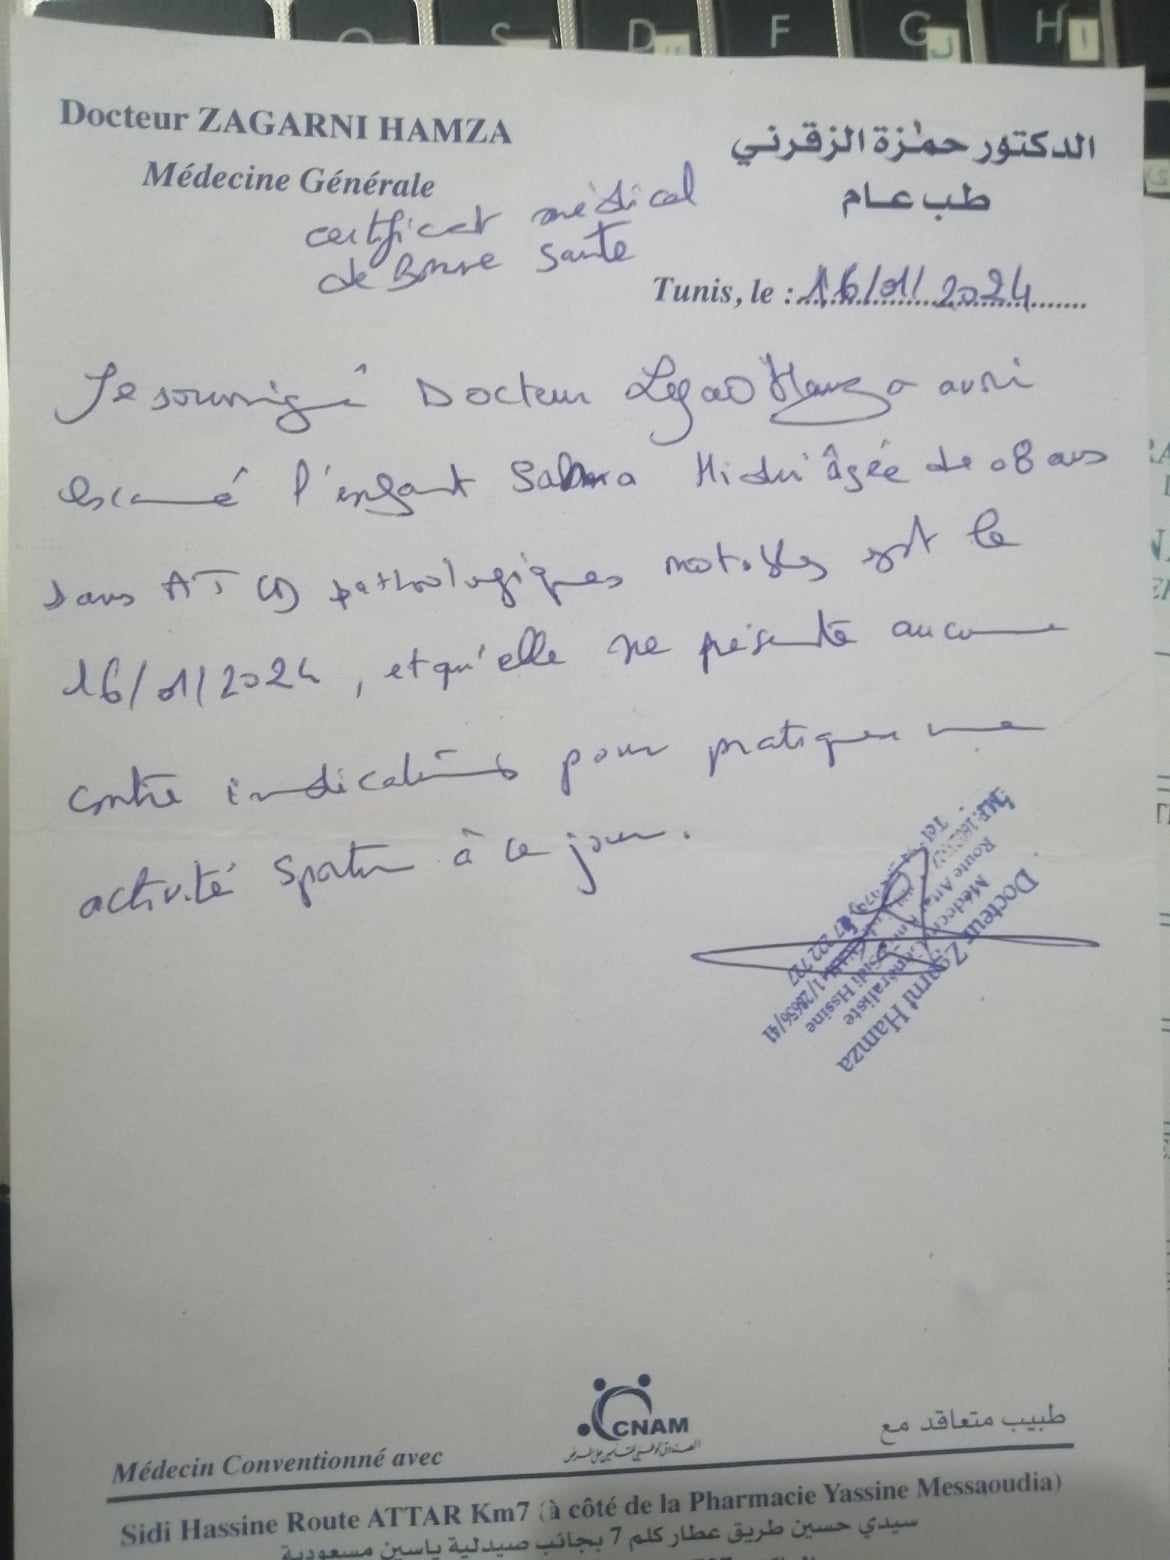 Q S D F G H
Docteur ZAGARNI HAMZA
Médecine Générale
الدكتور حمزة الزقرني
طب عام
certificat médical
de Bonne Santé
Tunis, le : 16/01/2024
Je soussigné Docteur avoir
examiné l'enfant âgée de 08 ans
sans ATCD pathologiques notables est le
16/01/2024, et qu'elle ne présente aucune
contre indications pour pratiquer une
activité sportive à ce jour.
Docteur Zgarni Hamza
Médecin Généraliste
Route Attar Sidi Hssine
Médecin Conventionné avec
CNAM
طبيب متعاقد مع
Sidi Hassine Route ATTAR Km7 (à côté de la Pharmacie Yassine Messaoudia)
سيدي حسين طريق عطار كلم 7 بجانب صيدلية ياسين مسعودية